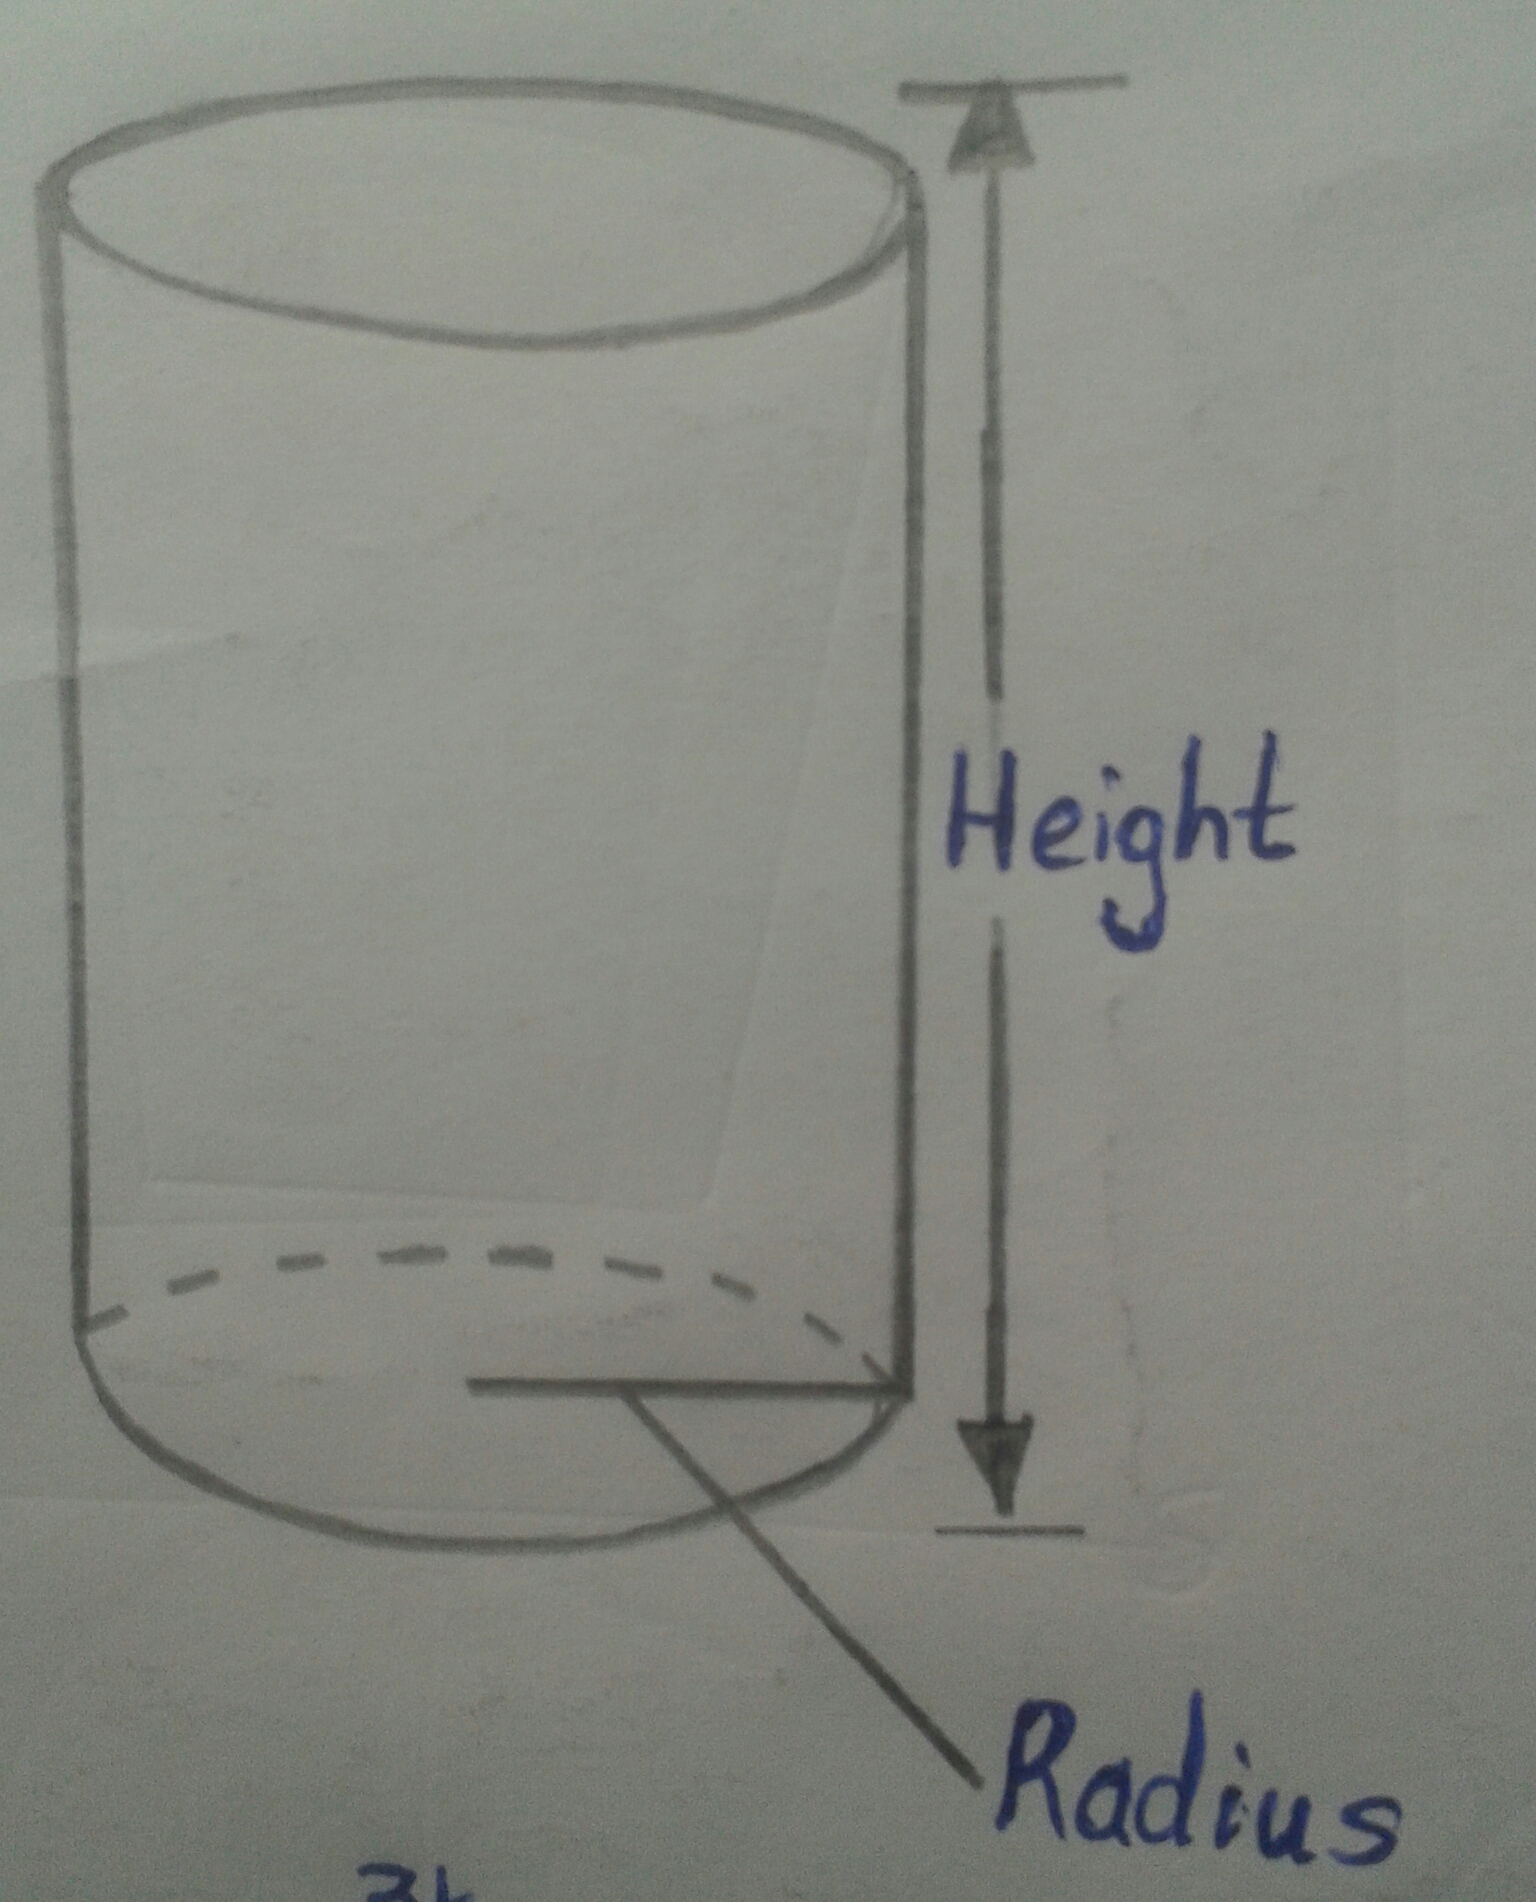 Height
Radius